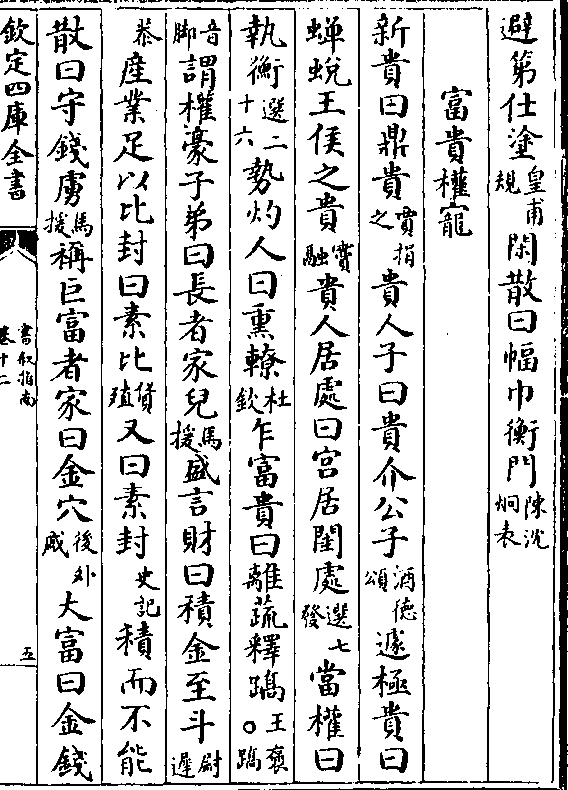 避第仕塗皇甫規閑散曰幅巾衡門陳沈炯表
富貴權寵
新貴曰鼎貴賈捐之貴人子曰貴介公子酒德頌遽極貴曰
蟬蛻王侯之貴竇融貴人居處曰宫居閨處選七發當權曰
執衡選二十六勢灼人曰熏轑杜欽乍富貴曰離蔬釋蹻王褒○蹻
音脚謂權豪子弟曰長者家兒馬援盛言財曰積金至斗尉遲
恭産業足以比封曰素比貨殖又曰素封史記積而不能
散曰守錢虜馬援稱巨富者家曰金穴後外戚大富曰金錢
欽定四庫全書
書叙指南
卷十二
五